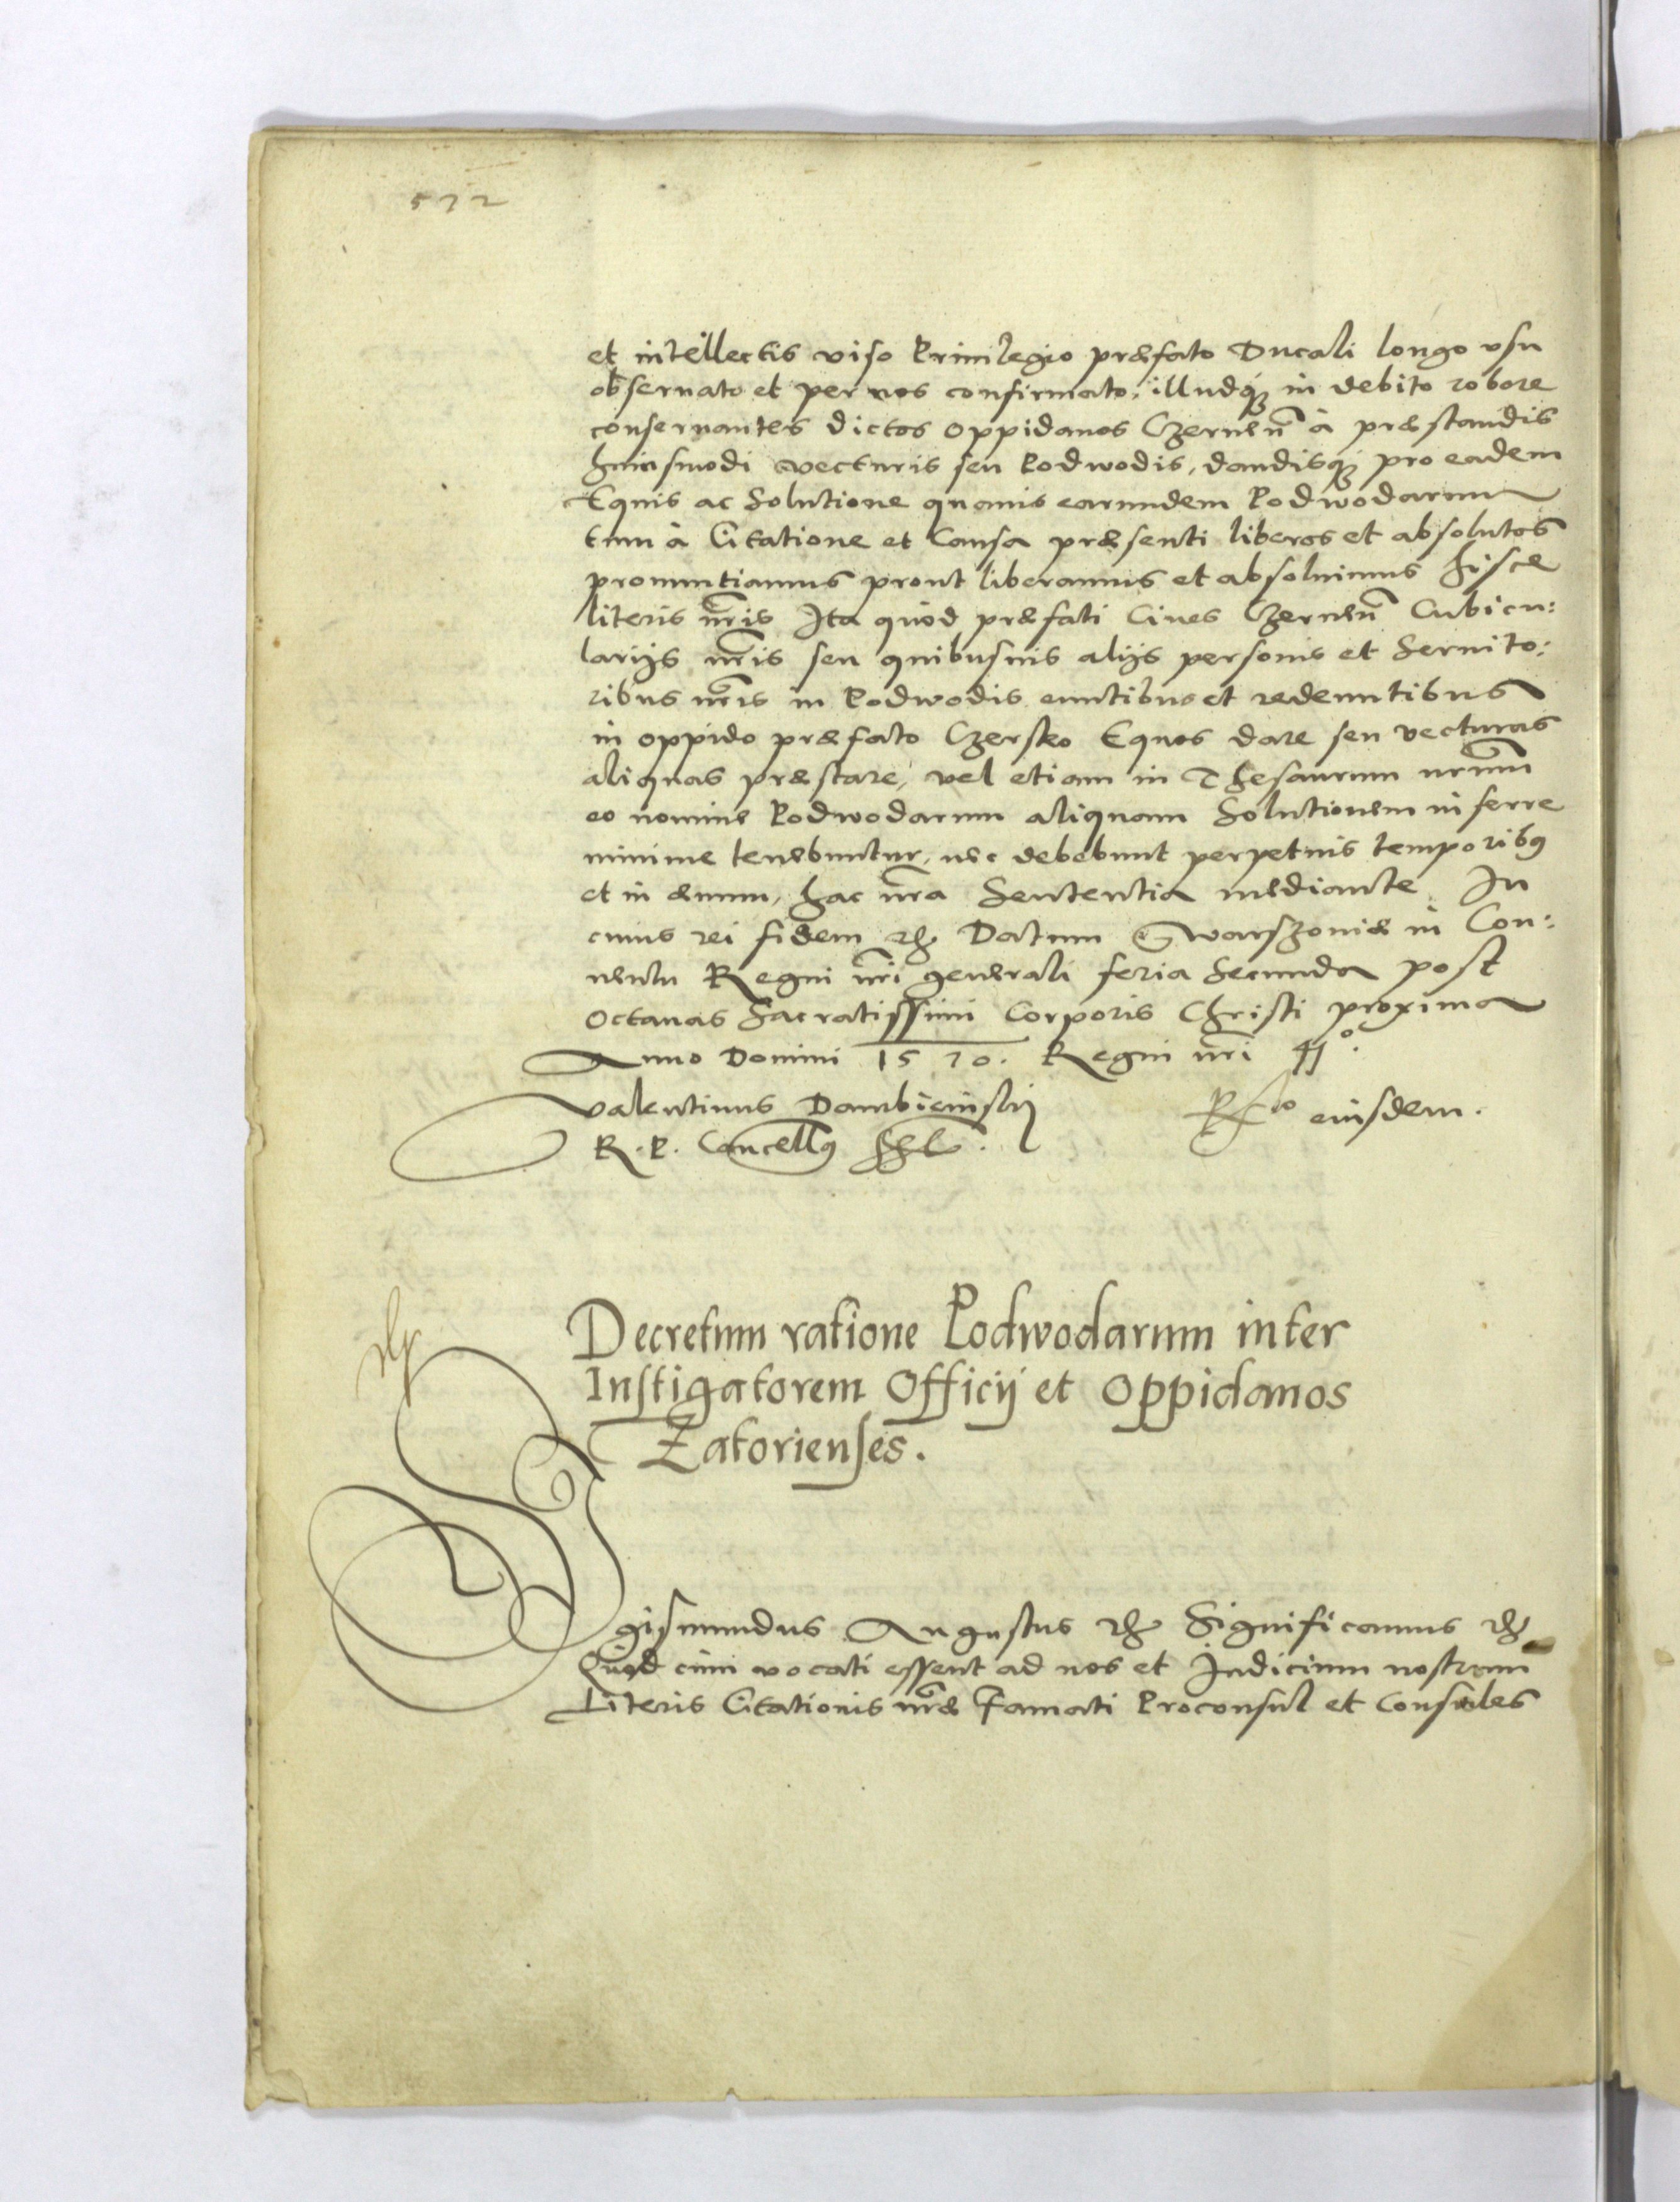 572
et intellectis viso Privilegio præfato Ducali longo vsu
obseruato et per nos confirmato, illudq́ꝫ in debito robore
conseruantes dictos oppidanos Czernen̄ à præstandis
huiusmodi vecturis seu Podwodis, dandisq́ꝫ pro eadem
Equis ac Solutione quauis earundem Podwodarum
tum à Citatione et Causa præsenti liberos et absolutos
pronuntiamus prout liberamus et absoluimus hisce
literis nr̃is Ita quòd præfati Ciues Czernen̄ Cubicu:
larijs nr̃is seu quibusuis alijs personis et Seruito:
ribus nr̃is in Podwodis euntibus et redeuntibus
in oppido præfato Czersko Equos dare seu vecturas
aliquas præstare, vel etiam in Thesaurum nr̃um
eo nomine Podwodarum aliquam Solutionem inferre
minime tenebuntur, nec debebunt perpetuis temporibꝰ
et in æuum, hac nr̃a Sententia mediante. In
cuius rei fidem etc. Datum Warszouiæ in Con:
uentu Regni nr̃i generali feria Secunda post
Octauas Sacratissimi Corporis Christi proxima
Anno Domini 1570. Regni nr̃i 41°.
Valentinus Dambieński
R. P. Cancellꝰ sst.
Rᵗⁱᵒ eiusdem.
Decretum ratione Podwodarum inter
Instigatorem Officij et Oppidanos
Zatorienses.
Sigismundus Augustus etc. Significamus etc.
Quòd cùm vocati essent ad nos et Judicium nostrum
Literis Citationis nr̃æ Famati Proconsul et Consules